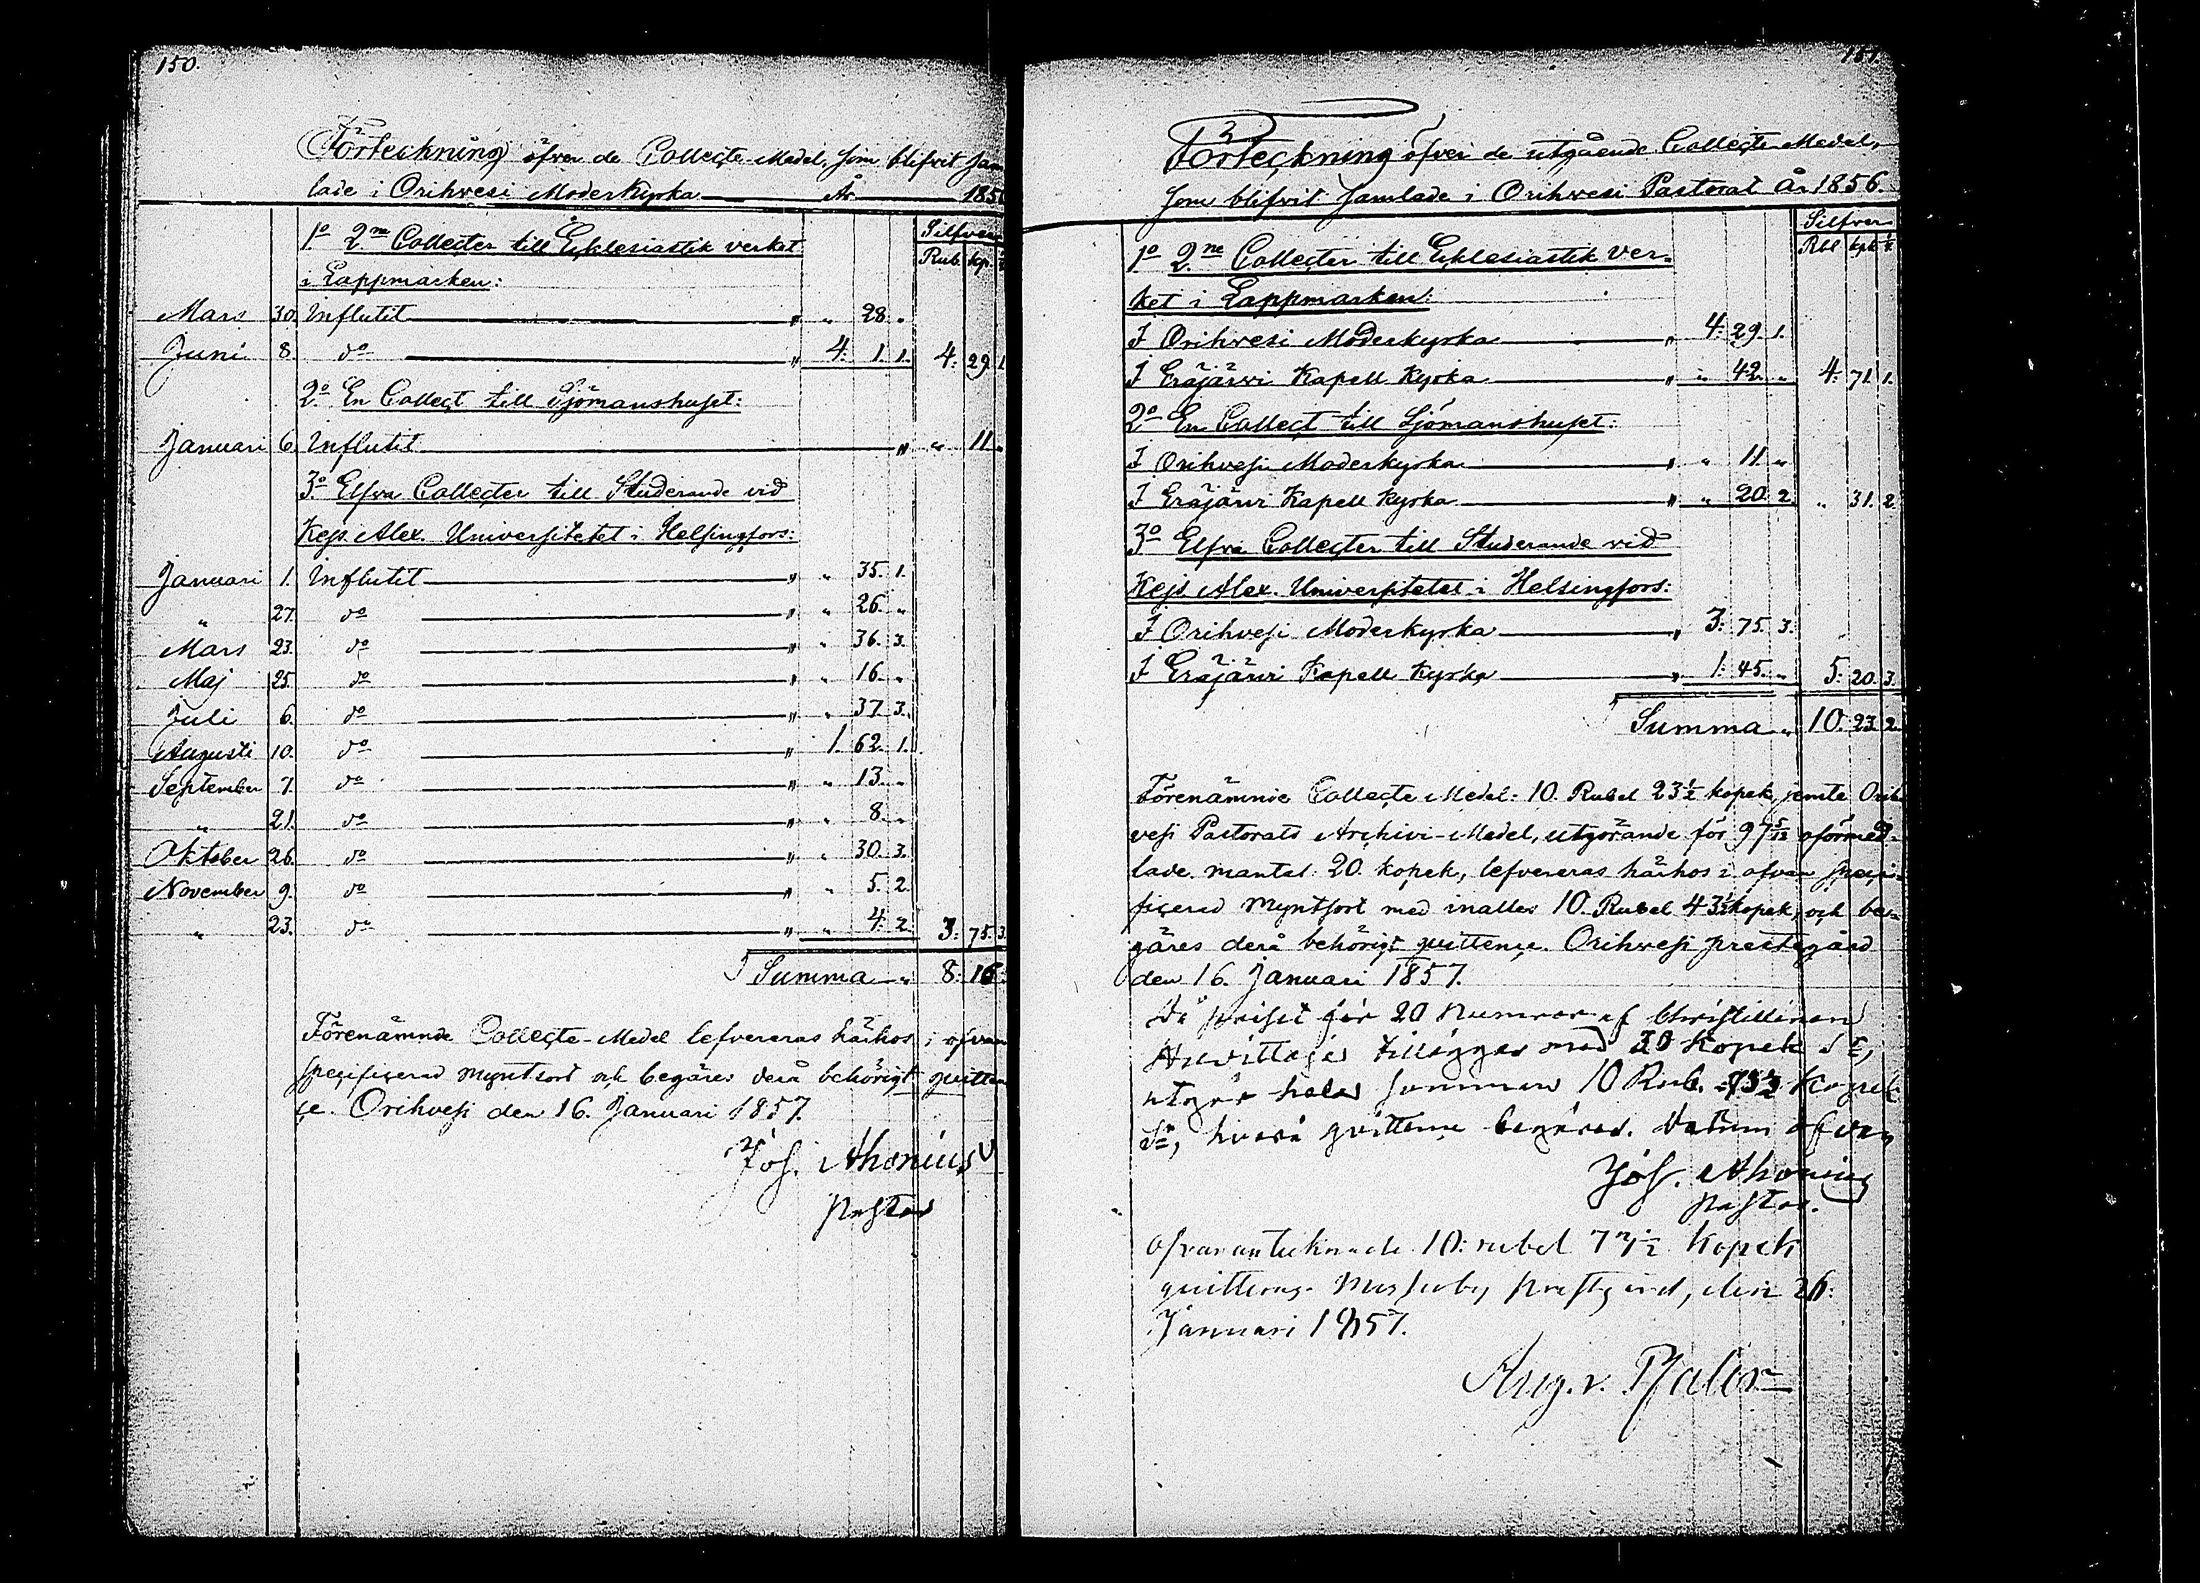 150.
Förteckning öfver de Collecte-Medel, som blifvit sam
lade i Orihvesi Moderkyrka År 1856
Silfver
Rub. kp.
1o 2ne Collecter till Ecklesiastik verket
i Lappmarken:
Mars 30. Influtit " " 28. "
Juni 8. do " 4. 1. 1. 4. 29. 1
2o En Collect till Sjömanshuset:
Januari 6. Influtit " " 11. "
3o Elfva Collecter till Studerande vid
Kejs. Alex. Universitetet i Helsingfors:
Januari 1. Influtit " " 35. 1.
" 27. do " " 26. "
Mars 23. do " " 36. 3.
Maj 25. do " " 16. "
Juli 6. do " " 37. 3.
Augusti 10. do " 1. 62. 1.
September 7. do " " 13. "
" 21. do " " 8. "
Oktober 26. do " " 30. 3.
November 9. do " " 5. 2.
" 23. do " " 4. 2. 3. 75. 3
Summa " 8. 16.
Förenämnde Collecte-Medel lefvereras härhos i ofvan
specificerad myntsort och begäres derå behörigt quitten
ce. Orihvesi den 16. Januari 1857.
Joh. Ahonius
pastor
151.
Förteckning öfver de utgående Collecte-Medel,
som blifvit samlade i Orihvesi Pastorat År 1856.
Silfver
Rbl kpk
1o 2ne Collecter till Ecklesiastik Ver-
ket i Lappmarken:
I Orihvesi Moderkyrka " 4. 29. 1.
I Eräjärvi Kapell Kyrka " " 42. " 4. 71. 1.
2o En Collect till Sjömanshuset:
I Orihvesi Moderkyrka " " 11. "
I Eräjärvi Kapell Kyrka " " 20. 2. " 31. 2
3o Elfva Collecter till Studerande vid
Kejs. Alex. Universitetet i Helsingfors:
I Orihvesi Moderkyrka " 3. 75. 3.
I Eräjärvi Kapell Kyrka " 1. 45. " 5. 20. 3.
Summa " 10. 23. 2
Förenämnde Collecte Medel 10 Rubel 23½ kopek, jemte Orih
vesi Pastorats Archivi-Medel, utgörande för 97 5/12 oförmed-
lade mantal 20 kopek, lefvereras härhos i ofvan speci-
ficerad myntsort med inalles 10 Rubel 43½ kopek, och be-
gäres derå behörigt quittence. Orihvesi prestegård
den 16. Januari 1857.
Då priset för 20 Numror af Christillinen
tillägges med 30 Kopek Sr,
utgör hela summan 10 Rub. 73½ Kopek
Sr, hvarå quittence begäres. Datum ofvan
Joh. Ahonius
pastor.
Ofvanantecknade 10 rubel 73½ Kopek
quitteras. Messuby prestgård, den 26.
Januari 1857.
Aug. v. Pfaler